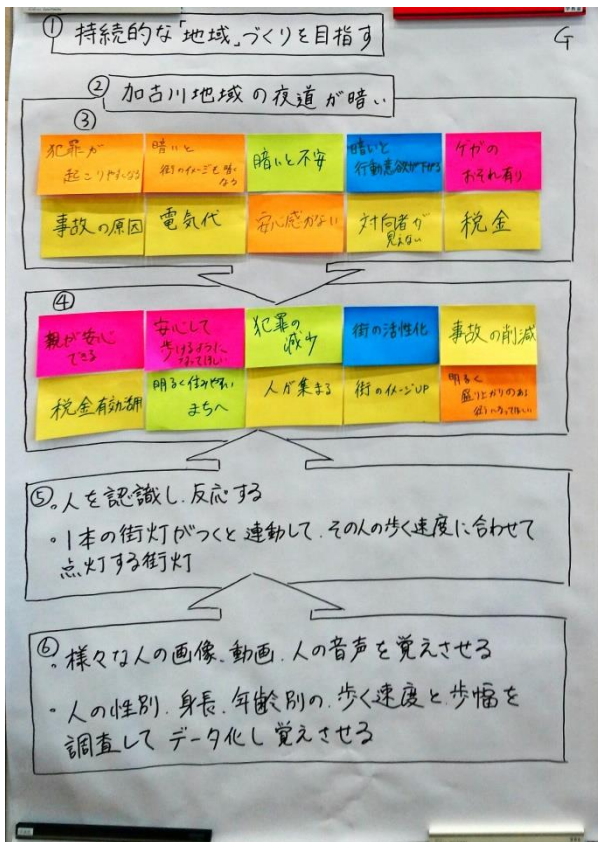 ① 持続的な「地域」づくりを目指す
G
② 加古川地域の夜道が暗い
③
犯罪が
起こりやすくなる
暗いと
街のイメージも悪く
なる
暗いと不安
暗いと
行動意欲が下がる
ケガの
おそれ有り
事故の原因
電気代
安心感がない
対向者が
見えない
税金
④
親が安心
できる
安心して
歩けるように
なってほしい
犯罪の
減少
街の活性化
事故の削減
税金有効活用
明るく住みやすい
まちへ
人が集まる
街のイメージUP
明るく
盛り上がりのある
街になってほしい
⑤・人を認識し、反応する
・1本の街灯がつくと連動して、その人の歩く速度に合わせて
点灯する街灯
⑥・様々な人の画像、動画、人の音声を覚えさせる
・人の性別、身長、年齢別の、歩く速度と、歩幅を
調査してデータ化し覚えさせる